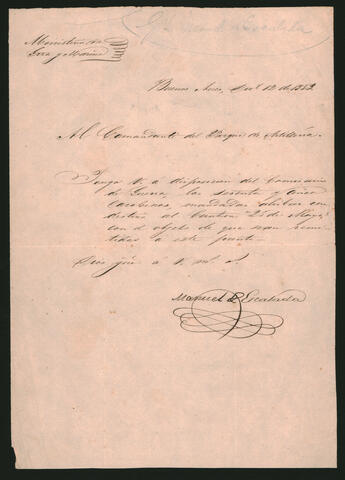 Ministerio de
Grra y Marina
Buenos Aires, 12 de 185
Al Comandante del Parque de Artillería.
Ponga V. a disposicion del Comisario
de Guerra, las sesenta y cinco
Carabinas, mandadas
destino al Canton "25 de Mayo,"
con el objeto de que sean remi-
tidas a este punto.
Dios gũe á V. m. a.
Manuel de Escalada